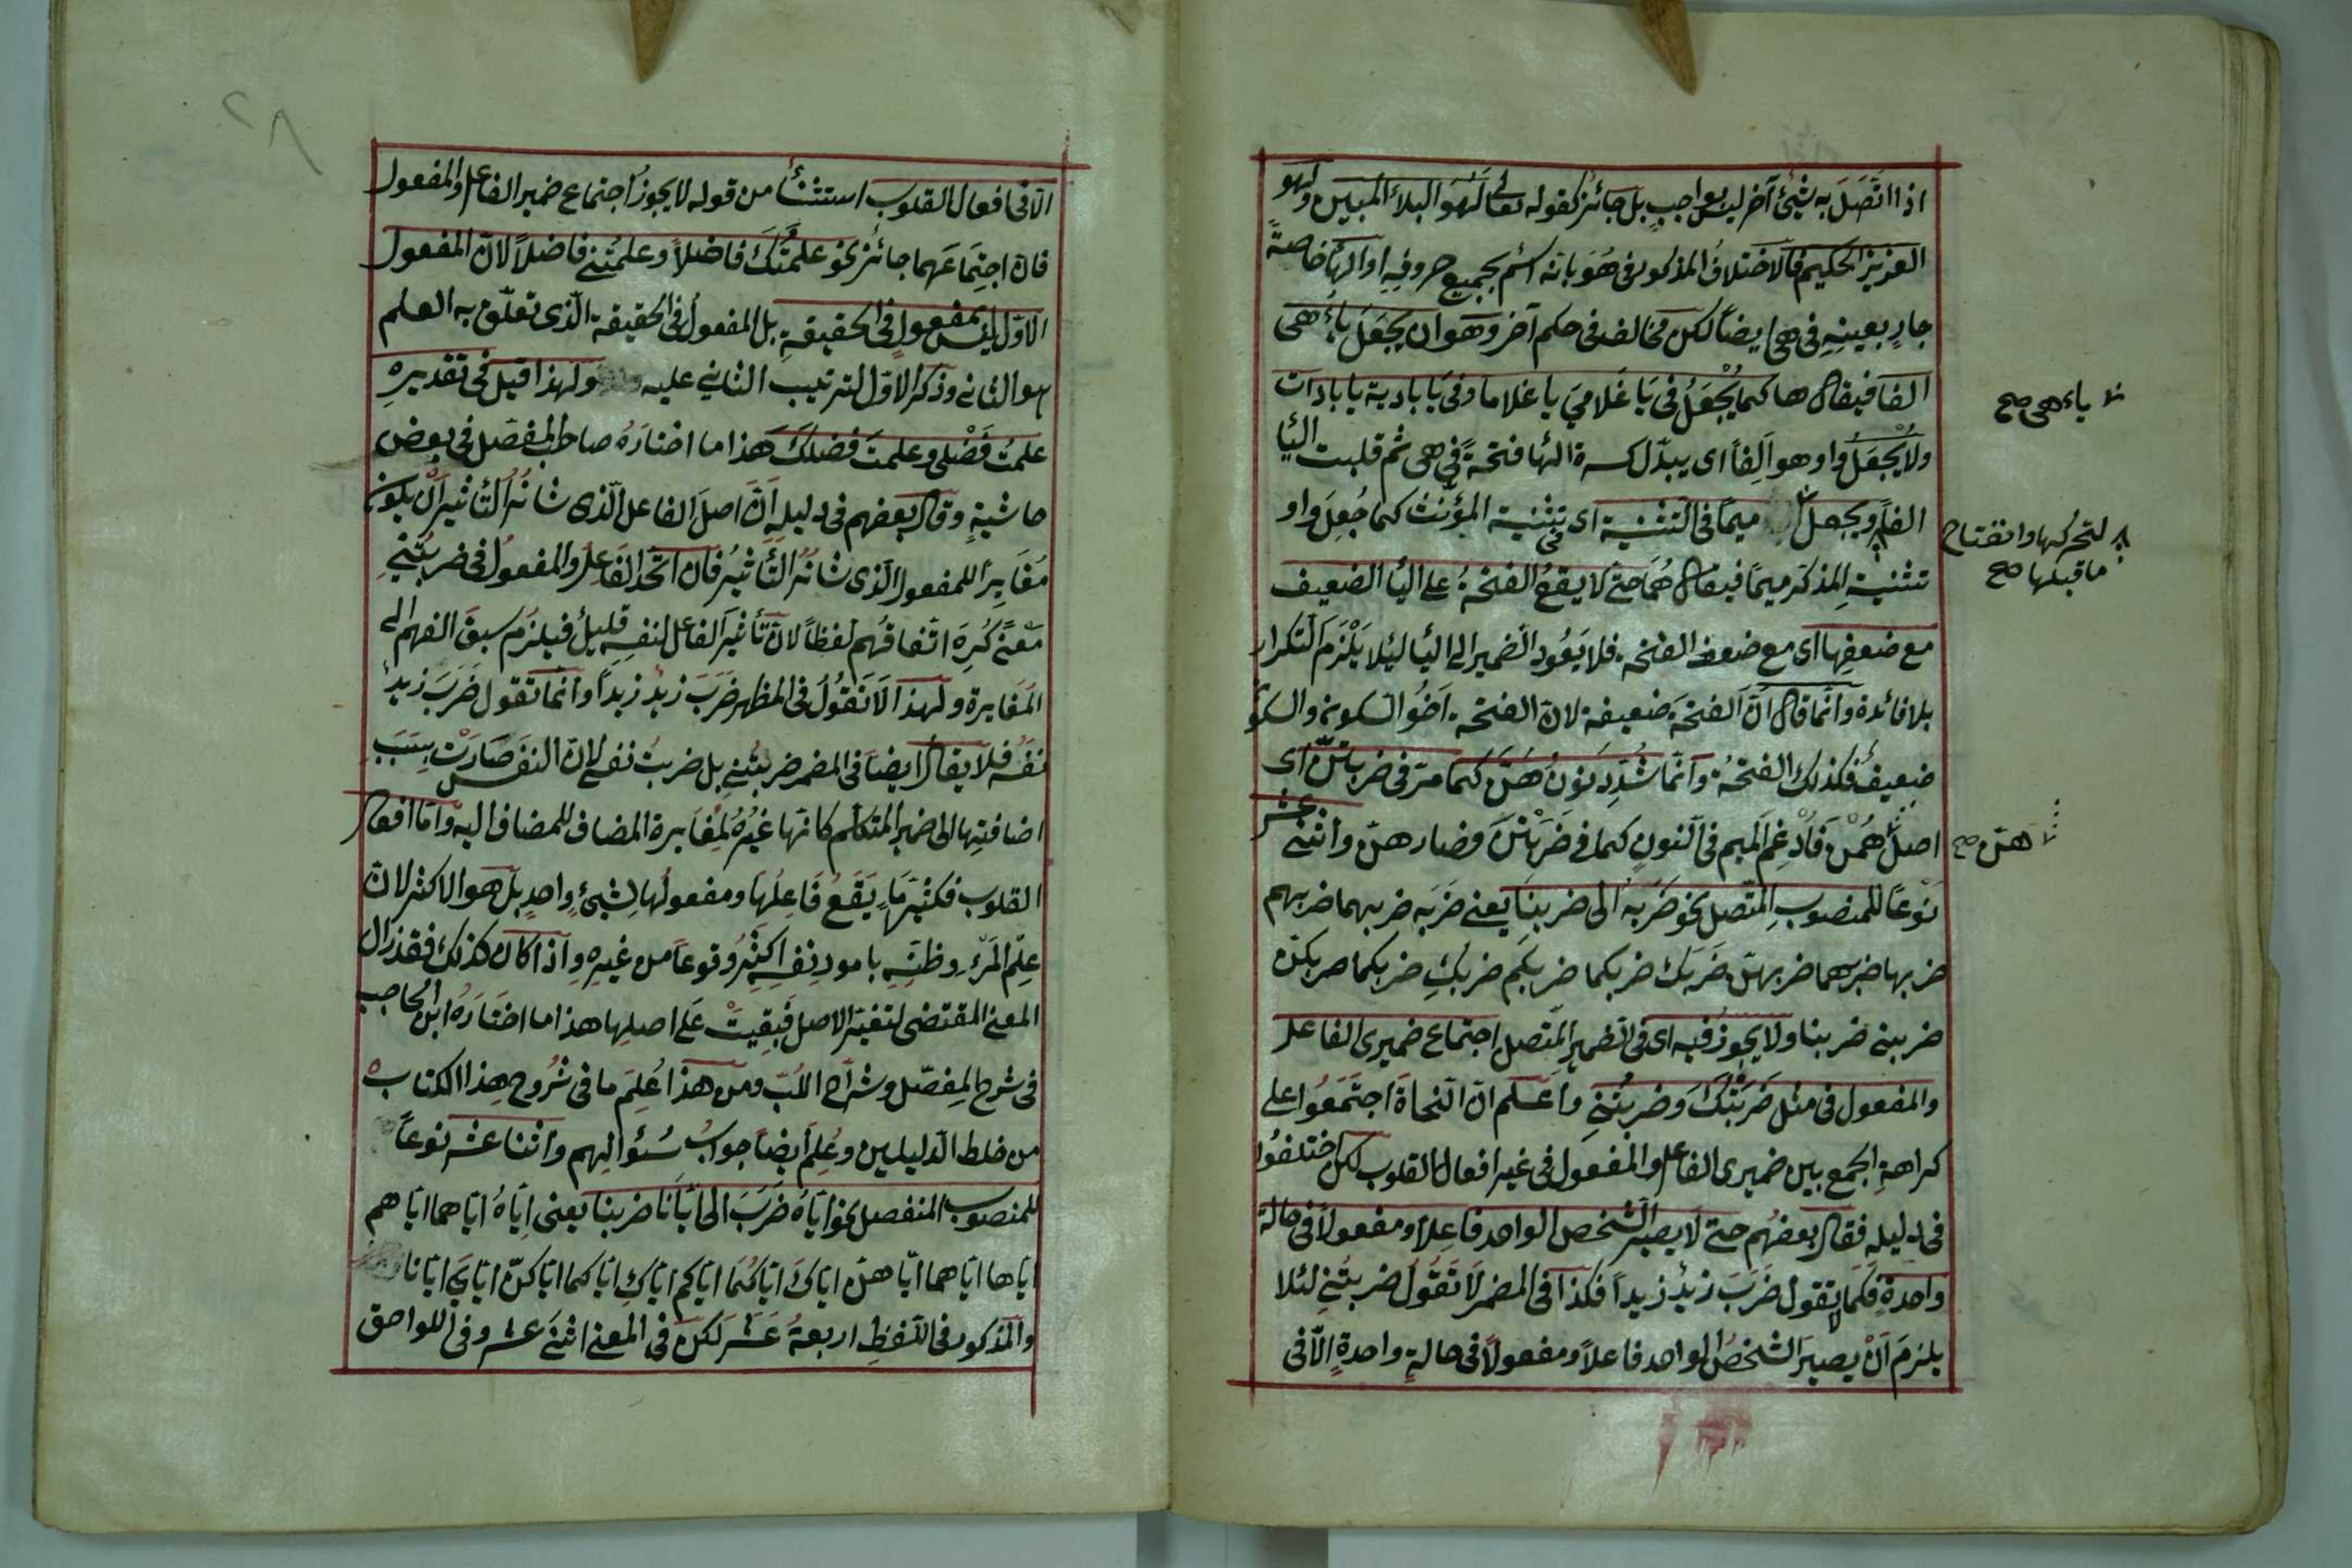 اذا اتّصَلَ به شيئ آخر ليس بواجبٍ بل جائز كقوله تعالى لَهُوَ البلاءُ المُبين ولهو
العزيز الحكيم فالاختلافُ المذكور فى هُوَ بانه اسم بجميع حروفِهِ او الهاء خاصةً
جارٍ بعينِهِ فى هى ايضاً لكن مخالف فى حكم آخر وهو ان يجعَلَ ياءُ هى
الفا فيقال ها كما يُجْعَلُ فى يَا غَلامىَ يا غلاما وفى يَا بادية يا باداة
ولا يُجْعَلُ واو هو اَلِفاً اى يبدّل كسرة الهاء فتحةً فى هى ثم قلبت الياء
الفاً ويجعل ميماً فى التثنية اى فى تثنية المؤنّث كما جُعِلَ واو
تثنيةِ المذكر ميماً فيقال هُمَا حتى لا يقعُ الفتحةُ على الياء الضعيف
مع ضعفِها اى مع ضعف الفتحة فلا يَعُود الضمير الى الياء لئلا يَلْزَمَ التكرار
بلا فائدة وانّما قال انّ الفتحةَ ضعيفة لانّ الفتحة اَخُو السكون والسكون
ضعيفٌ فكذلك الفتحةُ وانّما شُدِّد نونُ هُنَّ كما مرّ فى ضربتنّ اى
اصلُ هُمْنَ فَاُدْغِم الميم فى النونِ كما فى ضَرَبْتنَّ فصار هنّ واثنى عشر
نَوْعاً للمنصوبِ المتّصل نحو ضَرَبَهُ الى ضربنَا يعنى ضَرَبَه ضربهما ضربهم
ضربها ضربهما ضربهنّ ضَرَبَكَ ضربكما ضربكم ضربكِ ضربكما ضربكنّ
ضربنى ضربنا ولا يجوز فيه اى فى الضميرِ المتّصلِ اجتماع ضميرى الفاعل
والمفعول فى مثل ضَرَبْتُكَ وضربتُنى واعلم انّ النحاةَ اجتَمَعُوا على
كراهةِ الجمع بين ضميرى الفاعل والمفعول فى غير افعال القلوب لكن اختلفُوا
فى دليلهِ فقال بعضهُم حتى لا يصير الشخص الواحد فاعِلاً ومفعولاً فى حالة
واحدةٍ فكَمَا لا تقول ضَرَبَ زيدٌ زيداً فكذا فى المضمر لا تَقُولُ ضربتُنى لئلا
يلزمَ اَنْ يصيرَ الشخصُ الواحد فاعلاً ومفعولاً فى حالةٍ واحدةٍ الّا فى
ياء هى صح
لتحركها وانفتاح
ماقبلها صح
هنّ صح
الّا فى افعال القلوب استثناءٌ من قوله لا يجوزُ اجتماع ضمير الفاعل والمفعول
فانّ اجتِمَاعَهما جائز نحو علمْتُكَ فاضلاً وعلمتُنى فاضلاً لانّ المفعول
الاوّل ليس بمفعولٍ فى الحقيقةِ بل المفعولُ فى الحقيقة الّذى تعلّق به العلم
هو الثانى وذكر الاوّل لترتيب الثانى عليه ولهذا قيل فى تقديرِهِ
علمتُ فَضْلى وعلمتَ فضلكَ هَذا ما اختارَهُ صاحب المفصّل فى بعض
حاشيةٍ وقال بعضهم فى دليلهِ انّ اصلَ الفاعل الّذى شانُهُ التأثيرُ اَنْ يكون
مُغَايِراً للمفعول الّذى شانُهُ التَّأثيُر فان اتّحد الفَاعلُ والمفعولُ فى ضربتُنى
مَعْنًى كُرِهَ اتّفاقُهُم لفظاً لانّ تأثيَر الفاعل لنفسِه قليلٌ فيلزم سبقَ الفهم الى
المَغَايرة ولهذا لَا نَقُولُ فى المظهرِ ضَرَبَ زيدٌ زيداً وانّما تقول ضَرَبَ زيدٌ
نفسَه فلا يقال ايضاً فى المضمر ضربتُنى بل ضربتُ نفسى لانّ النفسَ صَارَتْ بسَبَبِ
اضافتِها الى ضميرِ المتكلّم كانّها غيْرُهُ لِمُغَايرة المضاف للمضاف اليه وامّا افعال
القلوب فكثيرَمَا يَقَعُ فَاعِلُهَا ومفعولُها لِشيئٍ واحدٍ بل هو الاكثر لانّ
عِلْمَ المَرْءِ وظنّهِ بامور نِفسِهِ اكثَرُ وقوعاً من غيرِهِ واذا كان كذلك فقد زال
المعنى المقتضى لتغيّر الاصل فَبَقِيَتْ عَلَى اصلِها هذا ما اختَارَهُ ابن الحاجب
فى شرحِ المفصّل وشرّاح اللُّبّ ومن هذا عُلِمَ ما فى شُرُوحِ هذا الكتاب
من خلط الدّليلين وعُلِمَ ايضاً جوابُ سُئوالِهم واثنا عشر نوعاً
للمنصوب المنفصل نحو ايّاهُ ضَرَبَ الى ايّانَا ضربنا يعنى اِيّاهُ ايّاهما ايّاهم
ايّاها ايّاهما ايّاهنّ ايّاكَ ايّاكُمَا ايّاكم ايّاكِ ايّاكما ايّاكنّ ايّاىَ ايّانا
والمذكور فى اللّفظِ اربعةَ عَشَر لكن فى المعنى اثنَى عشر وفى اللواحق